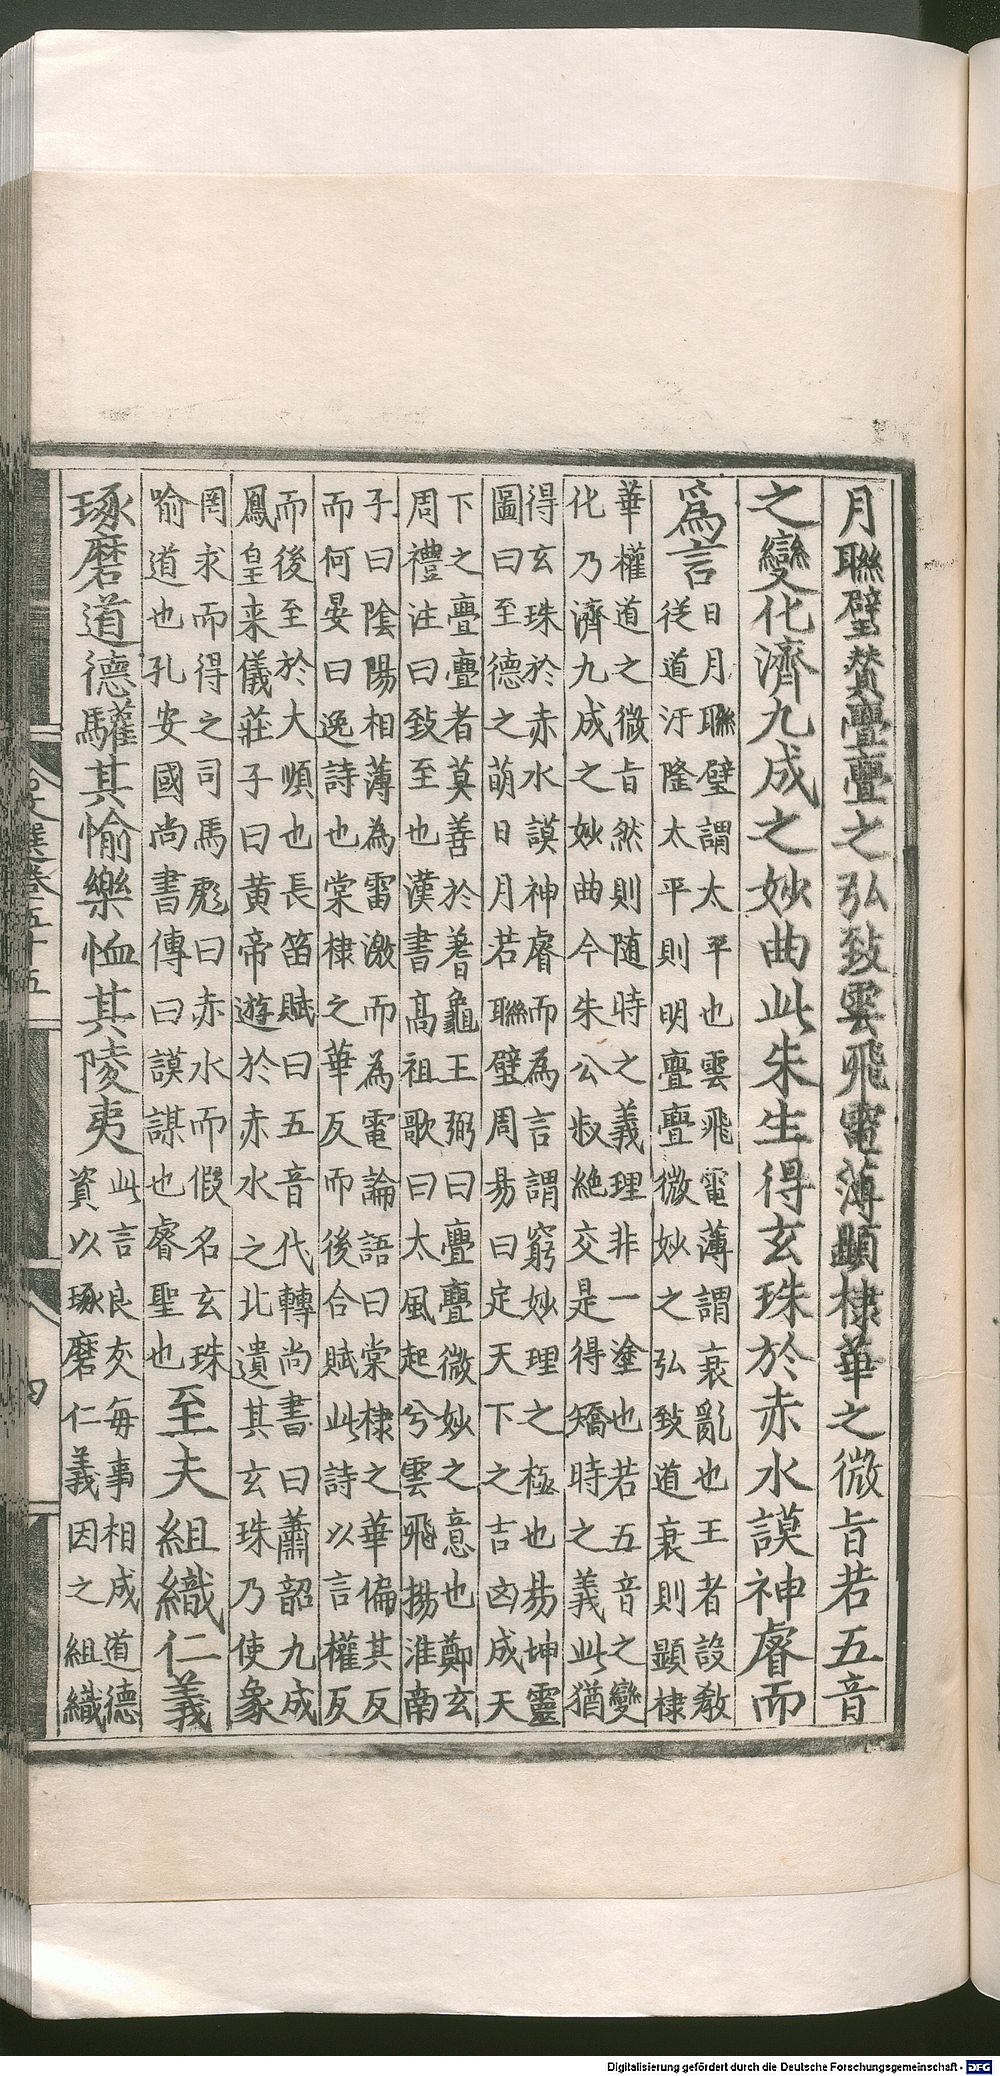 月聯璧賛亹亹之弘致雲飛電薄顯棣華之微旨若五音
之變化濟九成之妙曲此朱生得玄珠於赤水謨神睿而
爲言
日月聯璧謂太平也雲飛電薄謂衰亂也王者設教
從道汙隆太平則明亹亹微妙之弘致道衰則顯棣
華權道之微旨然則随時之義理非一塗也若五音之變
化乃濟九成之妙曲今朱公叔絶交是得矯時之義此猶
得玄珠於赤水謨神睿而為言謂窮妙理之極也易坤靈
圖曰至德之萌日月若聯璧周易曰定天下之吉凶成天
下之亹亹者莫善於蓍龜王弼曰亹亹微妙之意也鄭玄
周禮注曰致至也漢書髙祖歌曰大風起兮雲飛揚淮南
子曰陰陽相薄為雷激而為電論語曰棠棣之華偏其反
而何晏曰逸詩也棠棣之華反而後合賦此詩以言權反
而後至於大順也長笛賦曰五音代轉尚書曰蕭韶九成
鳳皇来儀莊子曰黄帝遊於赤水之北遺其玄珠乃使象
罔求而得之司馬彪曰赤水而假名玄珠
喻道也孔安國尚書傳曰謨謀也睿聖也
至夫組織仁義
琢磨道德驩其愉樂恤其陵夷
此言良友每事相成道德
資以琢磨仁義因之組織
文選卷五十五
四
Digitalisierung gefördert durch die Deutsche Forschungsgemeinschaft - DFG